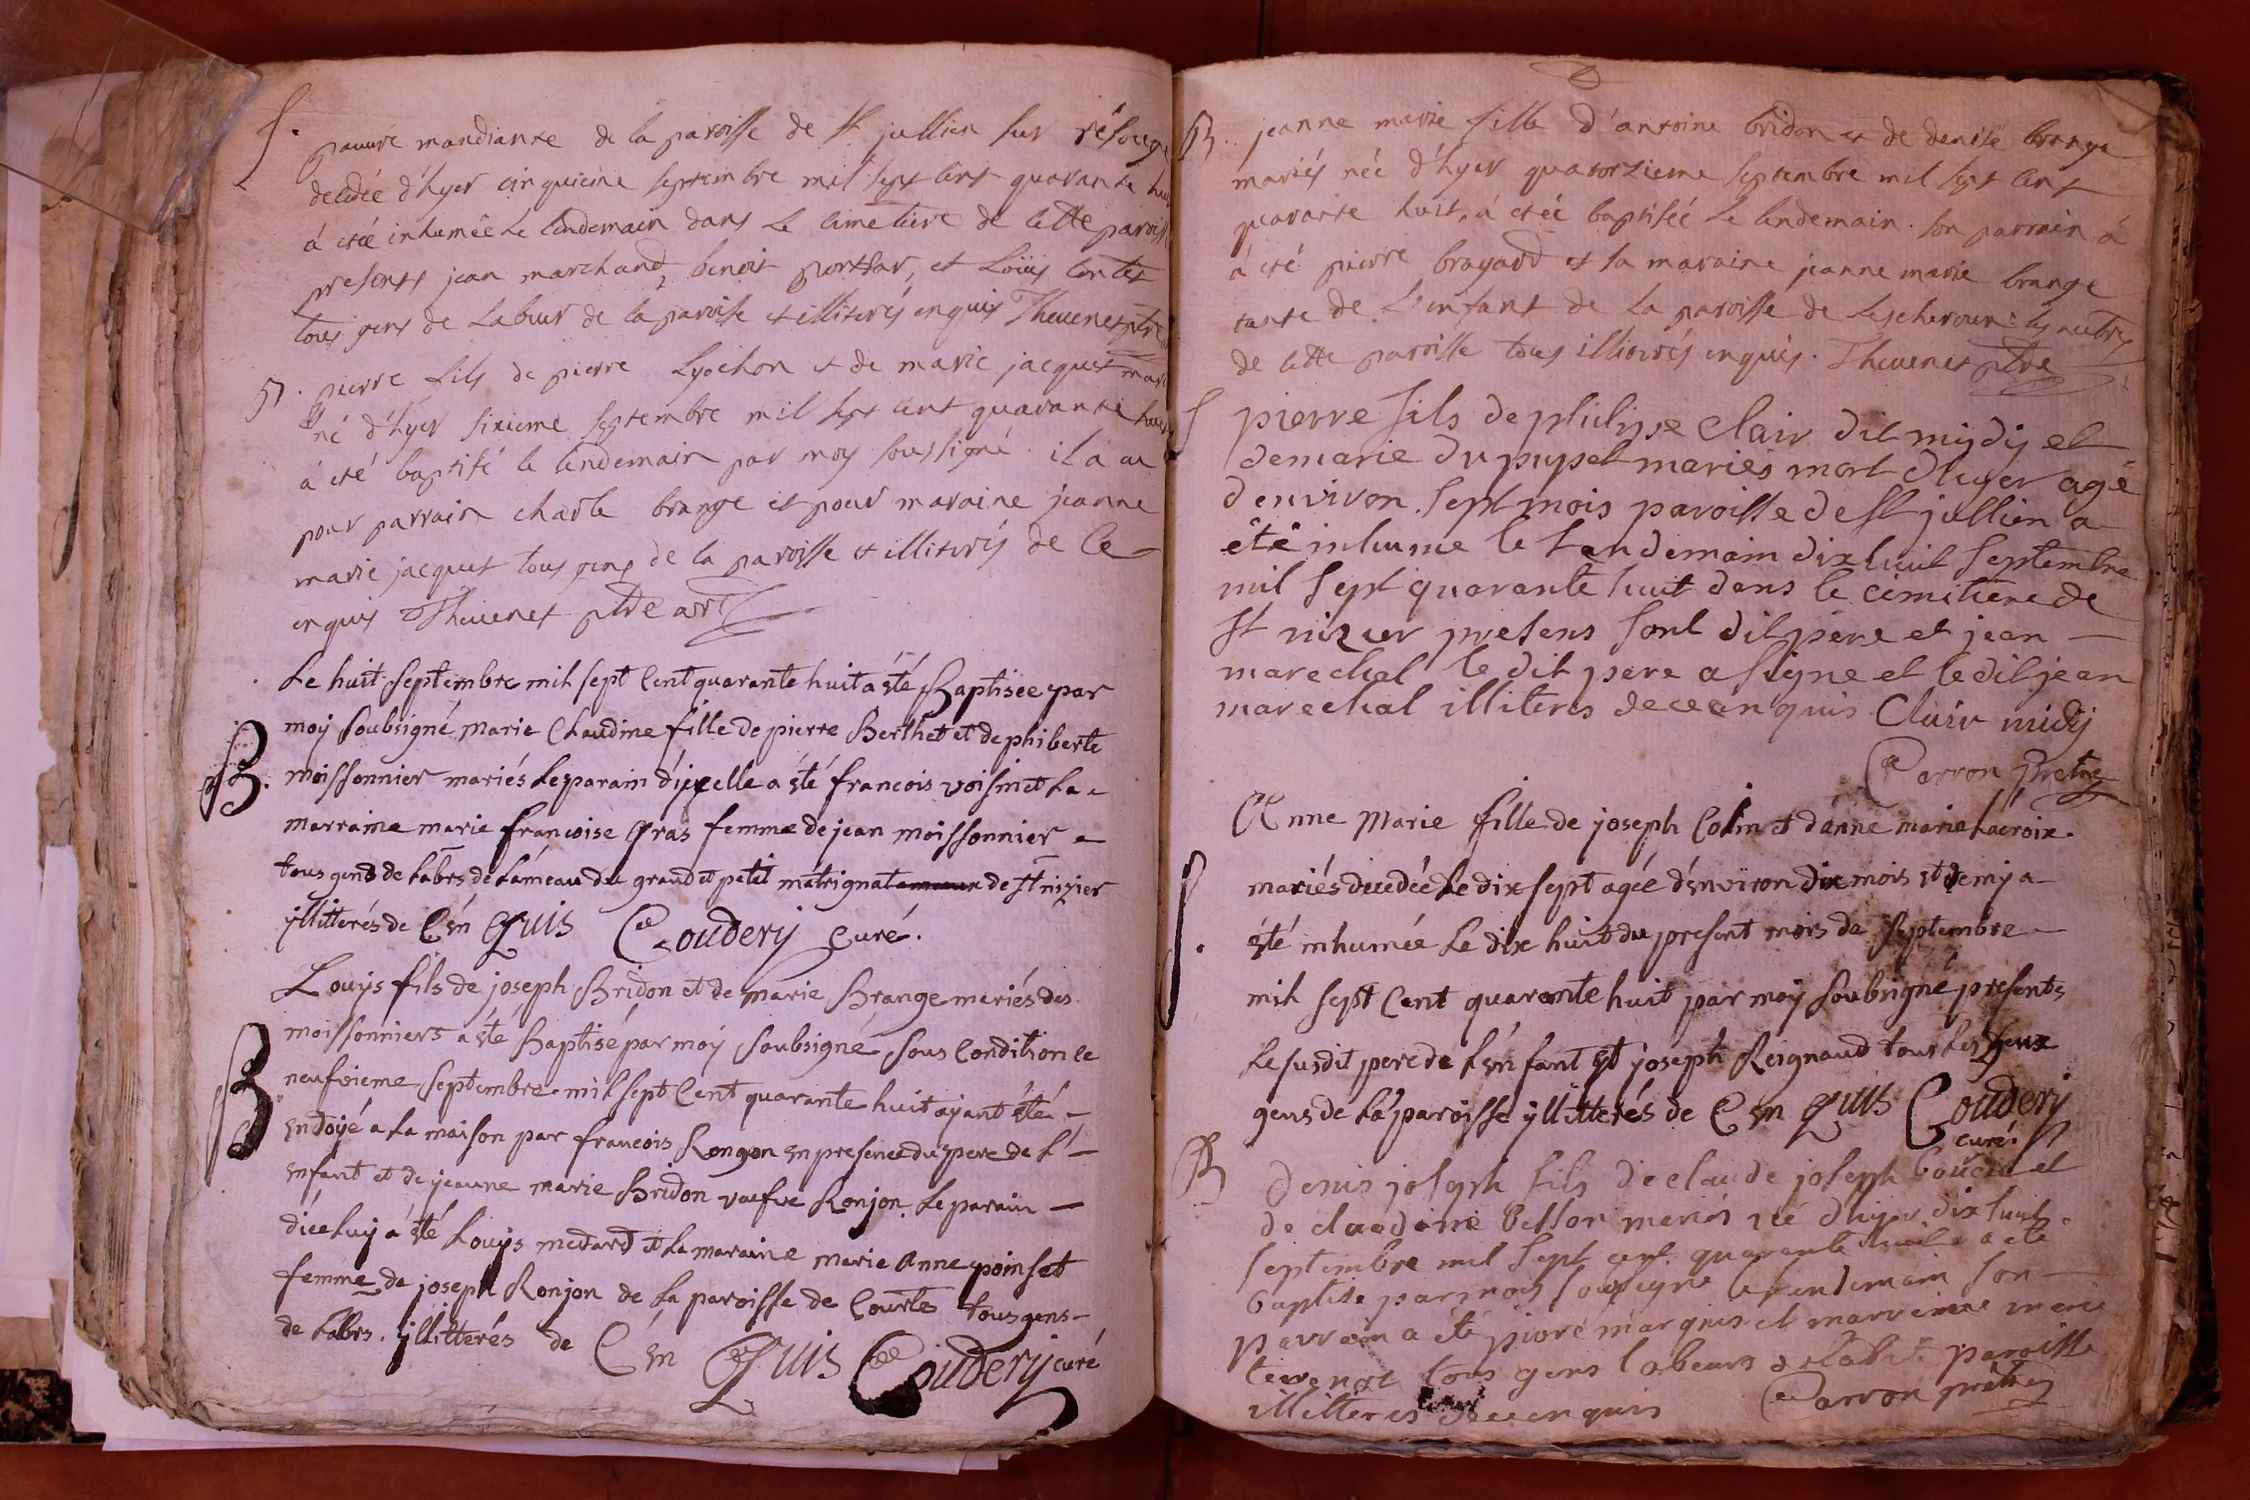 S.
pauvre mandiante de la paroisse de st jullien sur résouge
decedée d'hyer cinquieme septembre mil sept cent quarante huit
á etéé inhumée le lendemain dans le cimetiere de cette paroisse
presents jean marchand, benoit porthar, et Loüis contet
tous gens de labeur de la paroisse et illiterés enquis Thevenet ptre
B. pierre fils de pierre Lyochon et de marie jacquet mariés
né d'hyer sixieme septembre mil sept cent quarante huit
á eté baptisé le lendemain par moy soussigné il a eu
pour parrain charle brange et pour maraine jeanne
marie jacquet tous gens de la paroisse et illiterés de ce
enquis Thevenet ptre
Le huit septembre mil sept Cent quarante huit á été Baptisée par
moy soubsigné marie Claudine fille de pierre Berthet et de phiberte
B. moissonnier mariés le parain d'jcelle a été francois voisin et la
marraine marie francoise Gras femme de jean moissonnier
tous gens de labrs de laméau du grand et petit matrignat de st nizier
yllitterés de C én Quis Coudery curé.
Louys fils de joseph Bridon et de marie Brange mariés des
moissonniers a été Baptisé par moy soubsigné sous Condition le
B neufvieme septembre mil sept Cent quarante huit ayant été
endoyé a la maison par francois Rongon en presence du pere de l'
enfant et de jeanne marie Bridon vaefve Ronjon. le parain
dicelluy á été Louys medard et la maraine marie Anne poinset
femme de joseph Ronjon de la paroisse de Courtes tous gens
de labrs. yllitterés de C én Quis Coudery curé
B. jeanne marie fille d'antoine bridon et de denise brange
mariés née d'hyer quatorzieme septembre mil sept cent
quarante huit, á etéé baptiséé le lendemain. son parrain á
á eté pierre brayard et sa maraine jeanne marie brange
tante de l'enfant de la paroisse de Lescheroux: les autres
de cette paroisse tous illiterés enquis. Thevenet ptre
S pierre fils de philippe Clair dit mydy et
de marie du pupet mariés mort d'hyer agé
d'environ sept mois paroisse de st jullien a
été inhume le Landemain dix huit septembre
mil sept quarante huit dans le cimitiere de
st nizier presens sont dit pere et jean
marechal le dit pere a signe et le dit jean
marechal illiteres de ce enquis Clair midy
Carron Pretre
Anne Marie fille de joseph Colin et d'anne marie Lacroix.
mariés decedée Le dix sept agée d'environ dix mois et demy a
S. été inhumée Le dix huit du present mois de septembre
mil sept Cent quarante huit par moy soubsigné presents
Le susdit pere de l'enfant et joseph Reignaud tous les deux
gens de la paroisse yllitterés de C en Quis Coudery
curé.
B denis joseph fils de claude joseph et
de claudine besson mariés né d'hyer dix huit
septembre mil sept cent quarante huit a eté
baptise par moy sousigne le lendemain son
parrain a été piere marquis et marreine marie
tevenot tous gens labeurs paroisse
illitteres de ce enquis Carron prêtre